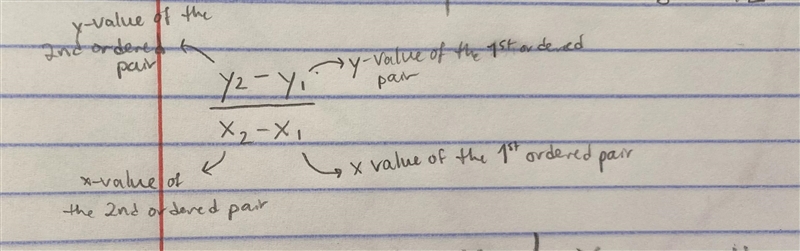 y-value of the
2nd ordered
pair
y-value of the 1st ordered
pair
y2 - y1
x2 - x1
x value of the 1st ordered pair
x-value of
the 2nd ordered pair